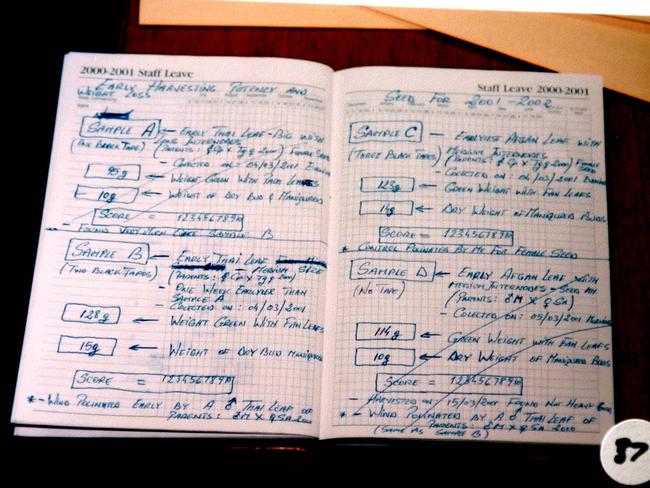 2000-2001 Staff Leave
EARLY HARVESTING POTENCY AND
WEIGHT LOSS
SAMPLE A ← EARLY THAI LEAF-BIG WITH
LONG INTERNODES
(ONE BLACK TAPE)
- COLECTED ON: 04/03/2001
95g ← WEIGHT GREEN WITH FAN LEAFS
10g ← WEIGHT OF DRY BUD & MANIQURED
SCORE = 12345678910
- FOUND VERY MUCH LIKE SAMPLE B
SAMPLE B ← EARLY THAI LEAF
MEDIUM SIZE
(TWO BLACK TAPES)
- ONE WEEK EARLYER THAN
SAMPLE A
- COLECTED ON: 04/03/2001
128g ← WEIGHT GREEN WITH FAN LEAFS
15g ← WEIGHT OF DRY BUD MANIQURED
SCORE = 12345678910
* - WIND POLINATED EARLY BY A ♂ THAI LEAF OF
PARENTS: ♂M X ♀SA 2000
Staff Leave 2000-2001
SEED FOR 2001-2002
SAMPLE C ← EARLYEST AFGAN LEAF WITH
MEDIUM INTERNODES
(THREE BLACK TAPES)
- COLECTED ON: 04/03/2001
123g ← GREEN WEIGHT WITH FAN LEAFS
14g ← DRY WEIGHT OF MANIQURED BUDS
SCORE = 12345678910
* CONTROL POLINATED BY ME FOR FEMALE SEED
SAMPLE D ← EARLY AFGAN LEAF WITH
MEDIUM INTERNODES - SEED
(NO TAPE)
(PARENTS: ♂M X ♀SA)
- COLECTED ON: 05/03/2001 MORNING
114g ← GREEN WEIGHT WITH FAN LEAFS
10g ← DRY WEIGHT OF MANIQURED BUDS
SCORE = 12345678910
- HARVESTED ON 15/03/2001 FOUND NOT HEAVY
* - WIND POLINATED BY A ♂ THAI LEAF OF
PARENTS: ♂M X ♀SA 2000
(SAME AS SAMPLE B)
37